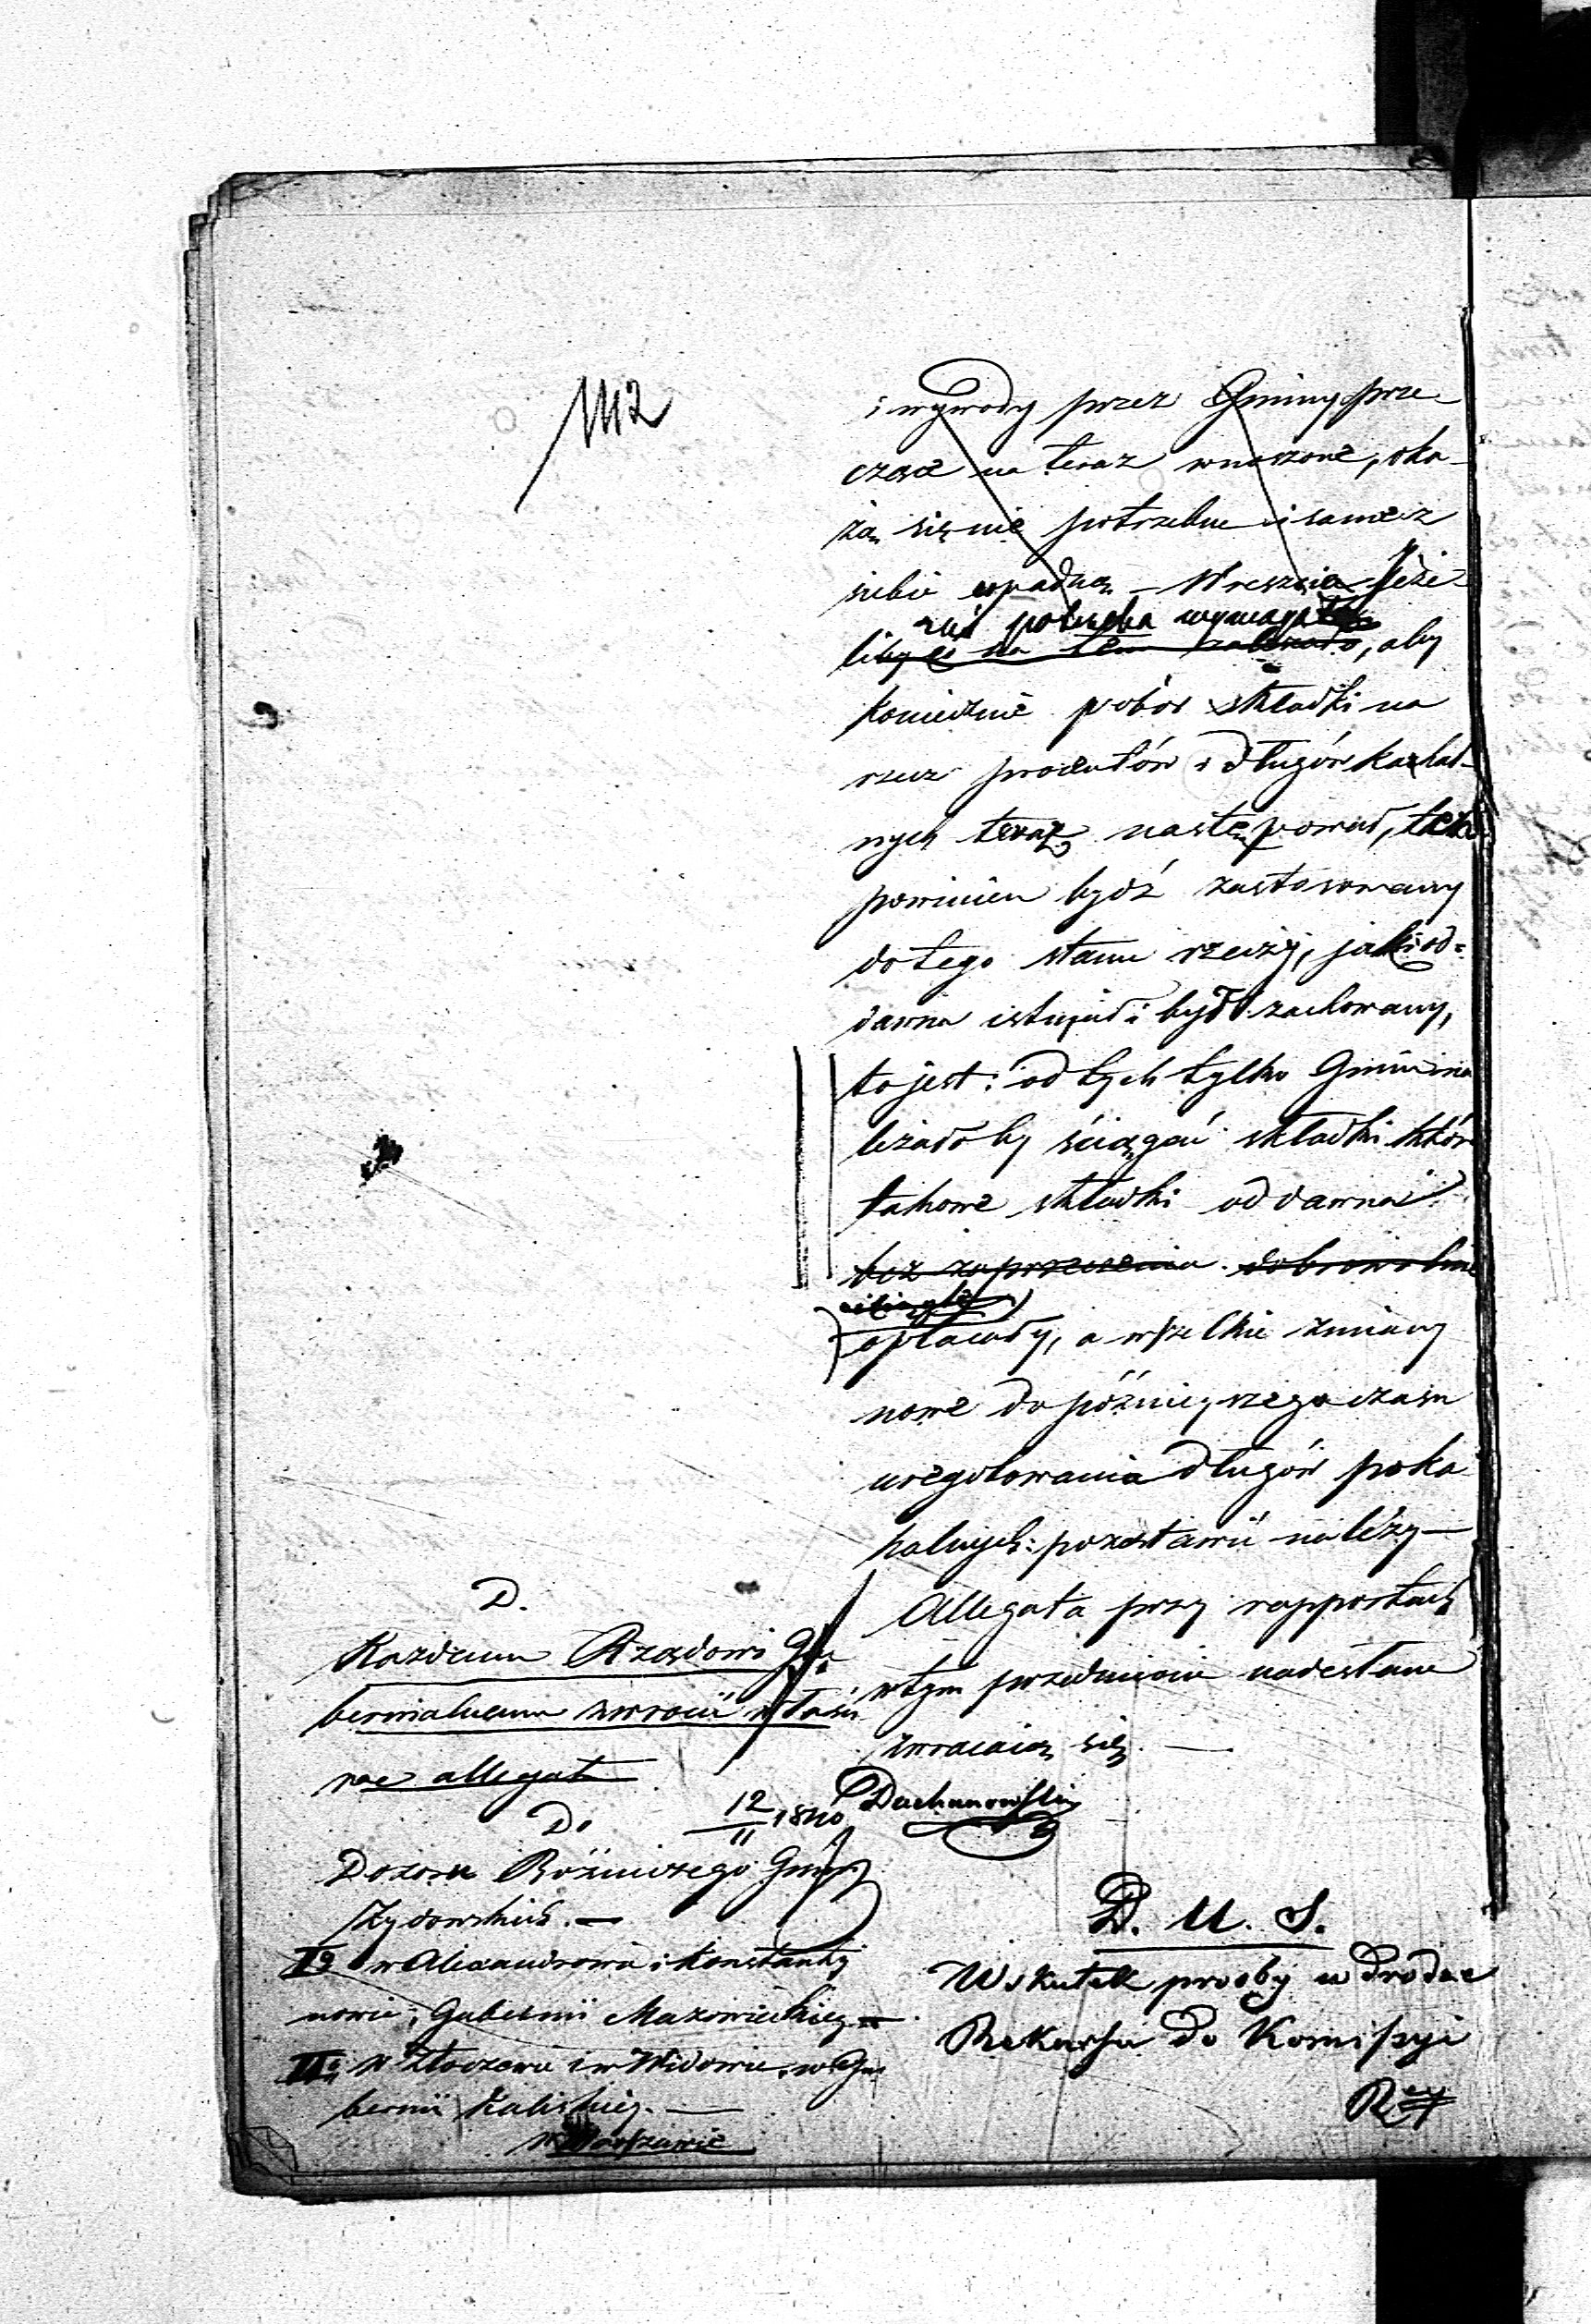 1112
i wywody przez Gminy prze-
czące na teraz wnoszone, oka-
żą się nie potrzebne i same z
siebie upadną – Wreszcie Jeże-
zaś potrzeba wymagała
liby co na tem zależało, aby
koniecznie pobór składki na
rzecz procentów i długów kahal-
nych teraz następował, ten
powinien bydź zastosowany
do tego stanu rzeczy, jaki od-
dawna istniał i był zachowany,
to jest: od tych tylko Gmin na
leżało by ściągać składki któr
takowe składki od dawna
bez zaprzeczenia dobrowolnie
opłacały, a wszelkie zmiany
nowe do późnieyszego czasu
uregulowania długów poka
halnych: pozostawić należy —
Allegata przy rapportach
w tym przedmiocie nadesłane
zwracaią się. —
D.
Każdemu Rządowi Gu
bernialnemu zwrócić właści
we allegata
Do
12/11 1840
Dozoru Bóźniczego Gminy
Żydowskich. —
I° w Alexandrowie i Konstanty
nowie; Gubernii Mazowieckiey —
II° w Złoczewie i w Widawie, w Gu
bernii Kaliskiey. —
w Warszawie
D. U. S.
Wskutek prośby w drodze
Rekursu do Komissyi